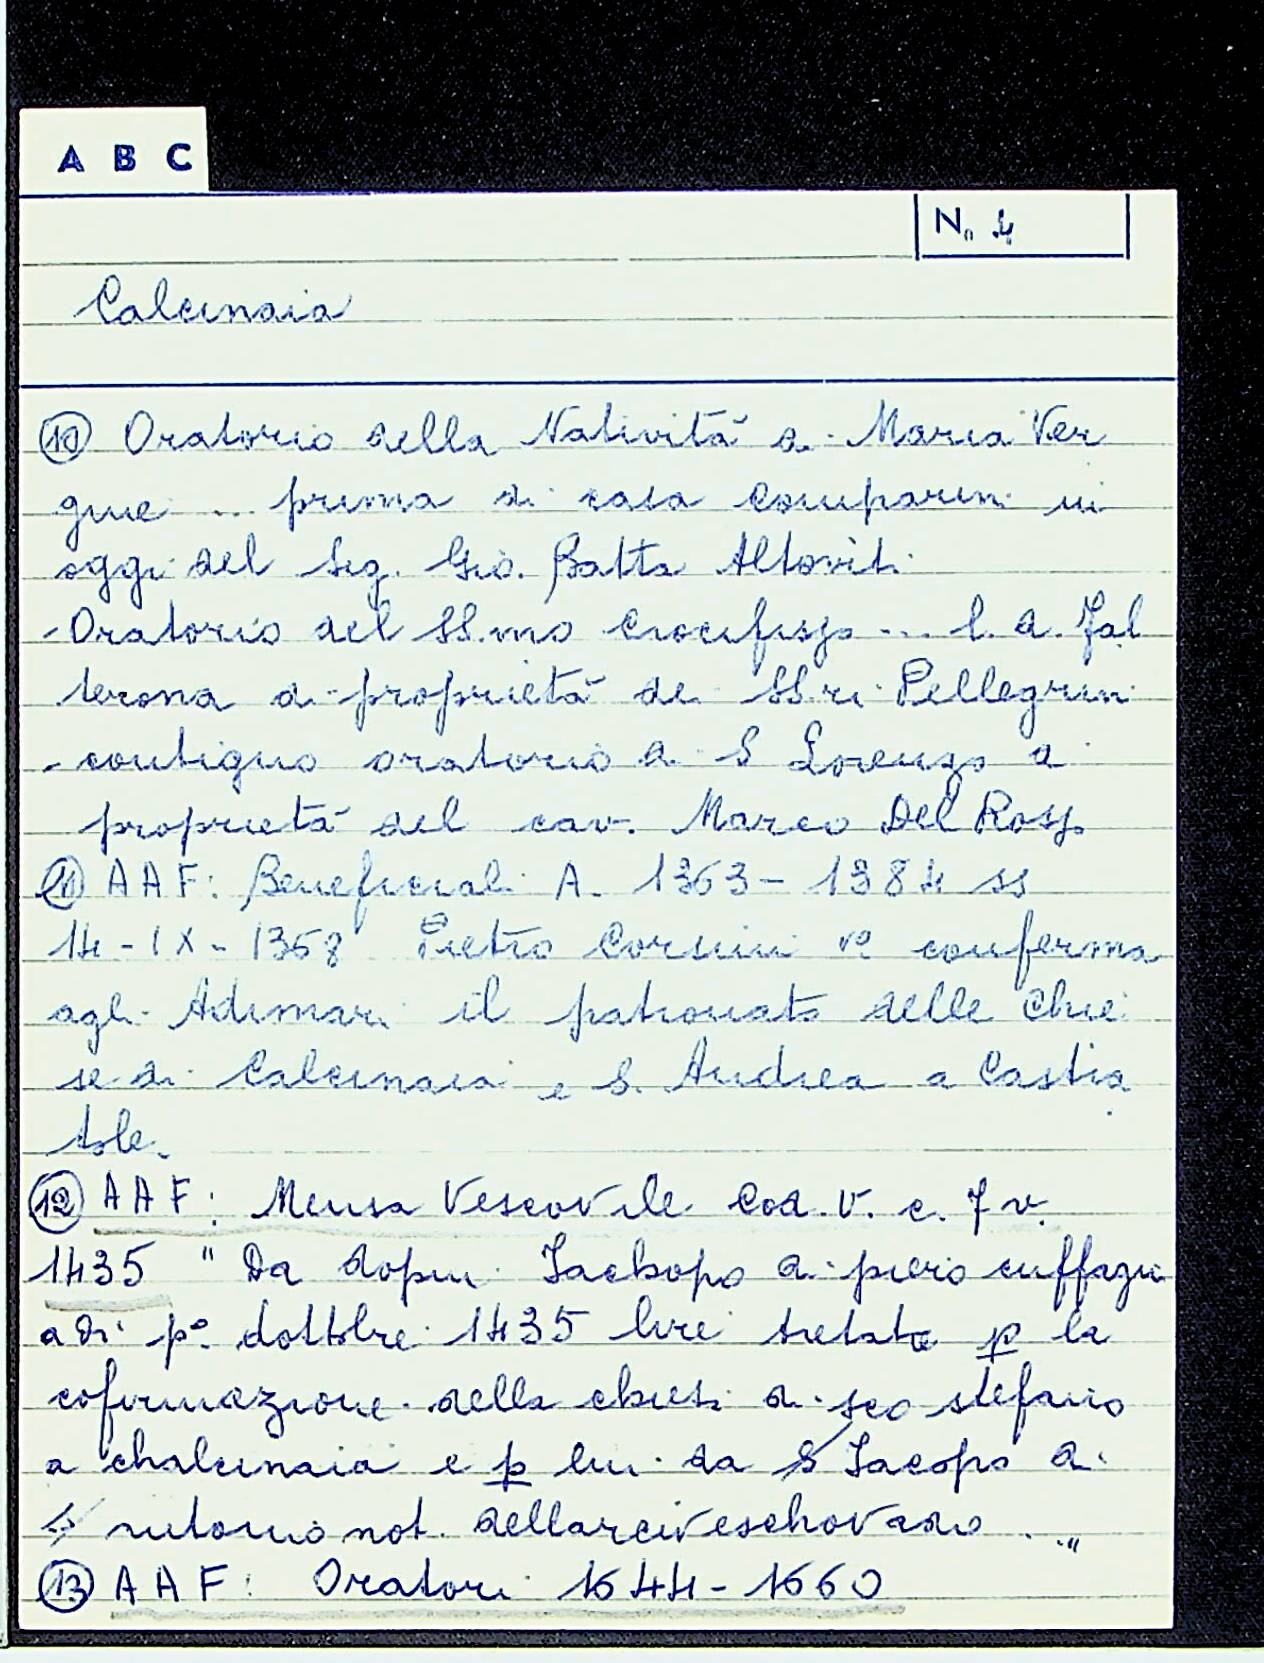 A B C
N. 4
Calcinaia
⑩ Oratorio della Natività di Maria Ver
gine ... prima di casa Comparini ui
oggi del Sig. Gio. Batta Altoviti
- Oratorio del SS.mo Crocifisso ... l. d. Fal
terona di proprietà dei SS.ri Pellegrini
- contiguo oratorio di S Lorenzo di
proprietà del cav. Marco Del Rosso
⑪ AAF: Beneficiali A. 1363 - 1384 ss
14 - IX - 1368 Pietro Corsini vº conferma
agli Adimari il patronato delle Chie
se di Calcinaia e S. Andrea a Castra
tole.
⑫ AAF: Mensa Vescovile Cod. V. c. 7 v.
1435 " Da dopni Jachopo di piero
adi pº dottobre 1435 lire p la
cofirmazione della chiesi di sco stefano
a chalcinaia e p lui da S Jacopo di
s/ not. dellarciveschovado . . "
⑬ AAF: Oratori 1644 - 1660